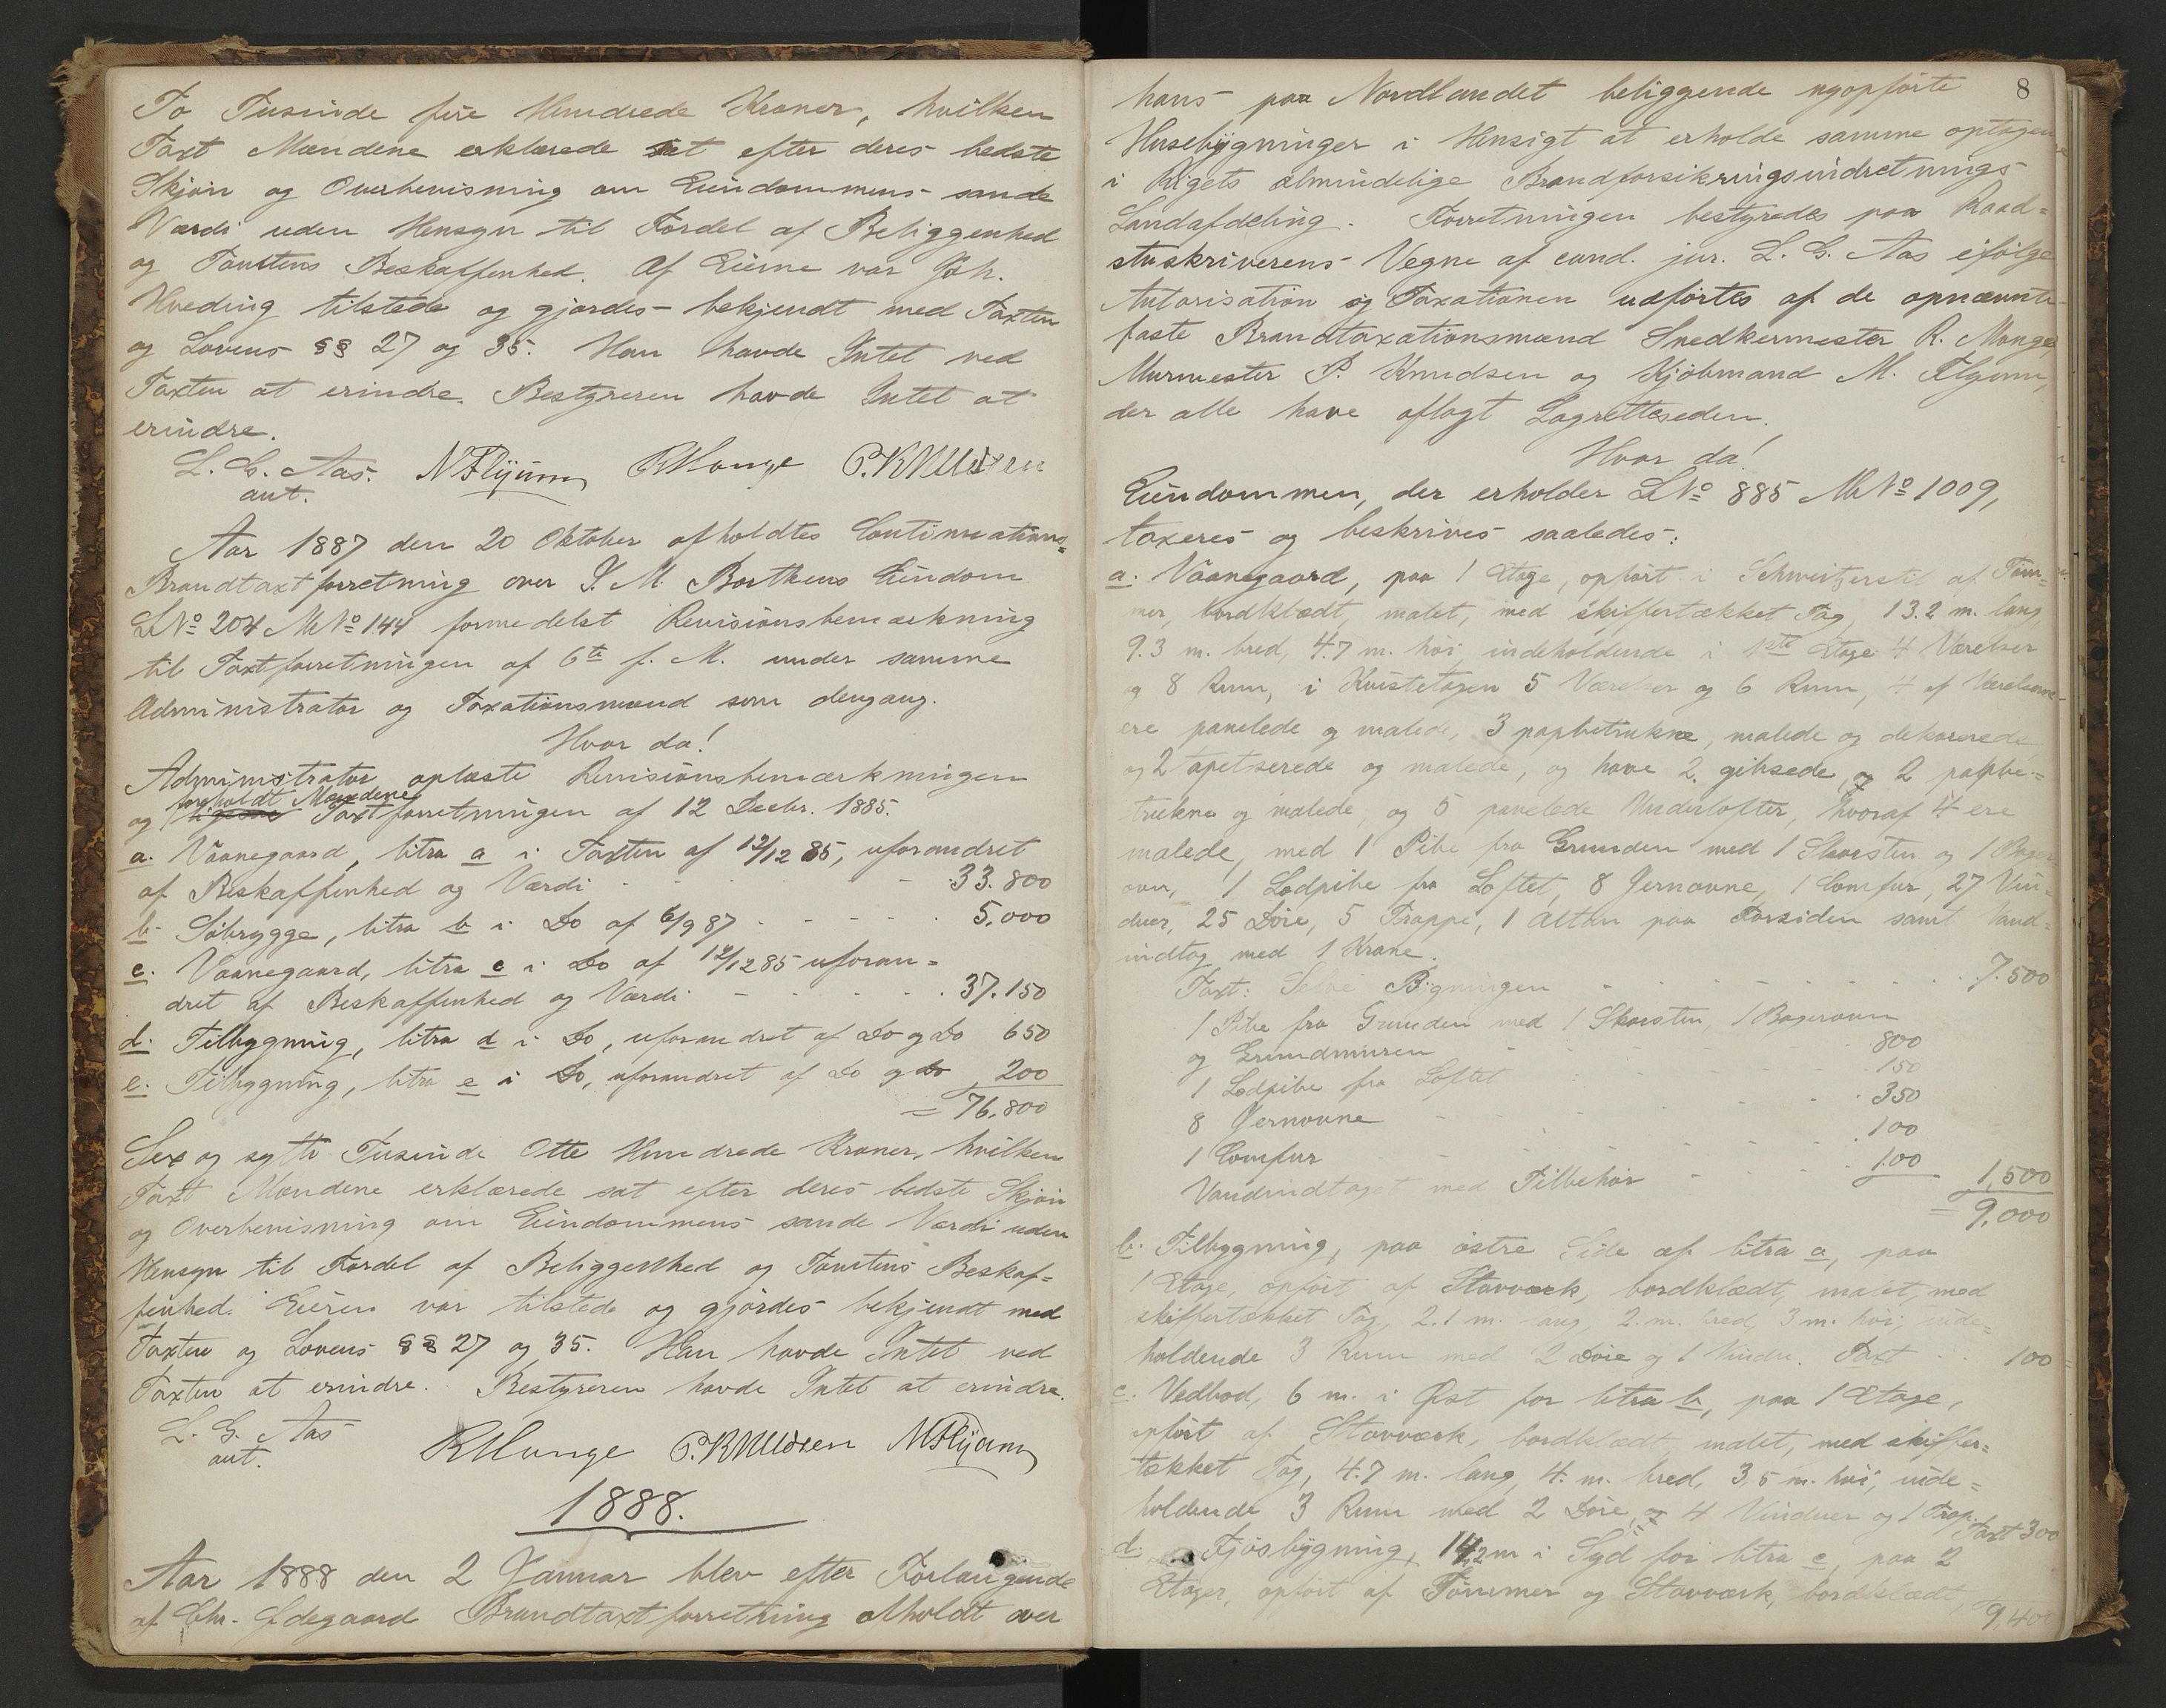 To Tusinde fire Hundrede Kroner, hvilken
Taxt Mændene erklærede sat efter deres bedste
Skjøn og Overbevisning om Eiendommens sande
Værdi uden Hensyn til Fordel af Beliggenhed
og Tomtens Beskaffenhed. Af Eierne var Joh.
Hveding tilstede og gjordes bekjendt med Taxten
og Lovens §§ 27 og 35. Han havde Intet ved
Taxten at erindre. Bestyreren havde Intet at
erindre.
L. G. Aas. N Flyum RMonge P. KNUdsen
aut.
Aar 1887 den 20 Oktober afholdtes Continuations=
Brandtaxtforretning over J. M. Bothens Eiendom
LNo 204 MNo 144 formedelst Revisionsbemærkning
til Taxtforretningen af 6te f. M. under samme
Administrator og Taxationsmænd som dengang.
Hvor da!
Administrator oplæste Revisionsbemærkningen
foreholdt Mændene
og Taxtforretningen af 12 Decbr. 1885.
a. Vaanegaard, litra a i Taxten af 12/12 85, uforandret
af Beskaffenhed og Værdi - - - - 33.800
b. Søbrygge, litra b i Do af 6/9 87 - - - - 5.000
c. Vaanegaard, litra c i Do af 12/12 85 uforan=
dret af Beskaffenhed og Værdi - - - - 37.150
d. Tilbygning, litra d i Do, uforandret af Do og Do 650
e. Tilbygning, litra e i Do, uforandret af Do og Do 200
= 76.800
Sex og sytti Tusinde Otte Hundrede Kroner, hvilken
Taxt Mændene erklærede sat efter deres bedste Skjøn
og Overbevisning om Eiendommens sande Værdi uden
Hensyn til Fordel af Beliggenhed og Tomtens Beskaf=
fenhed. Eieren var tilstede og gjordes bekjendt med
Taxten og Lovens §§ 27 og 35. Han havde Intet ved
Taxten at erindre. Bestyreren havde Intet at erindre.
L. G. Aas RMonge P. KNUdsen N Flyum
aut.
1888.
Aar 1888 den 2 Januar blev efter Forlangende
af Chr. Ødegaard Brandtaxtforretning afholdt over
8
hans paa Nordlandet beliggende nyopførte
Husebygninger i Hensigt at erholde samme optagen
i Rigets almindelige Brandforsikringsindretnings
Landafdeling. Forretningen bestyredes paa Raad=
stuskriverens Vegne af cand. jur. L. G. Aas ifølge
Autorisation og Taxationen udførtes af de opnævnte
faste Brandtaxationsmænd Snedkermester R. Monge,
Murmester P. Knudsen og Kjøbmand N. Flyum,
der alle have aflagt Lagretteseden.
Hvor da!
Eiendommen, der erholder LNo 885 MNo 1009,
taxeres og beskrives saaledes:
a. Vaanegaard, paa 1 Etage, opført i Schweitzerstil af Tøm=
mer, bordklædt, malet, med skiffertækket Tag, 13.2 m. lang
9.3 m. bred, 4.7 m. høi, indeholdende i 1ste Etage 4 Værelser
og 8 Rum, i Kvistetagen 5 Værelser og 6 Rum, 4 af Værelserne
ere panelede og malede, 3 papbetrukne, malede og dekorerede
og 2 tapetserede og malede, og have 2 gibsede, og 2 papbe=
trukne og malede, og 5 panelede Underlofter, hvoraf 4 ere
malede, med 1 Pibe fra Grunden med 1 Skorsten og 1 Bager=
ovn, 1 Lodpibe fra Loftet, 8 Jernovne, 1 Comfur, 27 Vin=
duer, 25 Døre, 5 Trappe, 1 Altan paa Forsiden samt Vand=
indtag med 1 Krane.
Taxt: Selve Bygningen - - - - 7.500
1 Pibe fra Grunden med 1 Skorsten, 1 Bagerovn
og Grundmuren - - - - 800
1 Lodpibe fra Loftet - - - 150
8 Jernovne - - - - 350
1 Comfur - - - - 100
Vandindtaget med Tilbehør - - - 100 1,500
= 9,000
b. Tilbygning, paa østre Side af litra a, paa
1 Etage, opført af Stavværk, bordklædt, malet, med
skiffertækket Tag, 2.1 m. lang, 2. m. bred, 3 m. høi, inde=
holdende 3 Rum med 2 Døre og 1 Vindu. Taxt - - 100
c. Vedbod, 6 m. i Øst for litra b, paa 1 Etage,
opført af Stavværk, bordklædt, malet, med skiffer=
tækket Tag, 4.7 m. lang, 4. m. bred, 3,5 m. høi, inde=
holdende 3 Rum med 2 Døre, og 4 Vinduer og 1 Trap. Taxt 300
d. Fjøsbygning, 14,2 m i Syd for litra c, paa 2
Etager, opført af Tømmer og Stavværk, bordklædt,
9,400